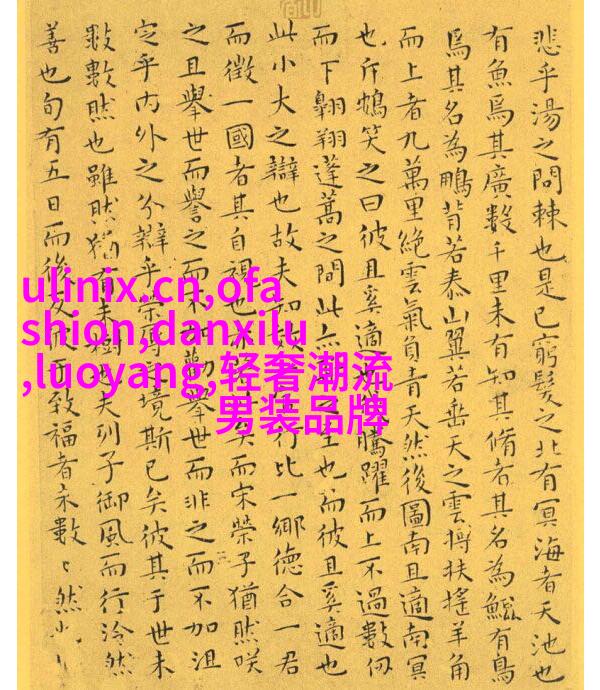 悲乎湯之問棘也是已窮髮之北有冥海者天池也
有魚焉其廣數千里未有知其脩者其名為鯤有鳥
焉其名為鵬背若泰山翼若垂天之雲搏扶搖羊角
而上者九萬里絕雲氣負青天然後圖南且適南冥
也斥鴳笑之曰彼且奚適也騰躍而上不過數仞
而下翱翔蓬蒿之間此之至也而彼且奚適也
此小大之辯也故夫知行比一鄉德合一君
而徵一國者其自視也矣而宋榮子猶然咲
之且舉世而譽之而不加勸舉世而非之而不加沮
定乎內外之分辯乎榮辱境斯已矣彼其于世未
數數然也雖然猶有未樹也夫列子御風而行泠然
善也旬有五日而後反于致福者未數〻然也
ulinix,cn,ofa
shion,danxilu
,luoyang,轻奢潮流
男装品牌